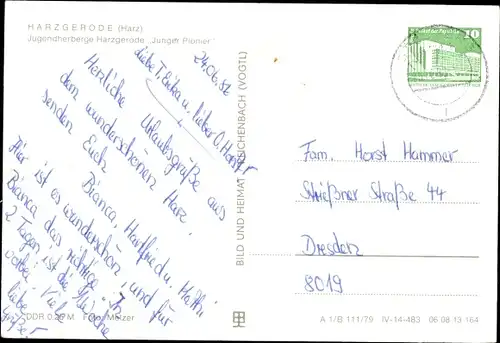 HARZGERODE (Harz)
Jugendherberge Harzgerode „Junger Pionier“
24.06.82
Liebe T. Erika u. lieber O. Horst
Herzliche Urlaubsgrüße aus
dem wunderschönen Harz
senden Euch
Bianca, Hartfried u. Kathi
Hier ist es wunderschön, und für
Bianca das richtige. In
2 Tagen ist die
vorbei. Viele
liebe
Grüße!
DDR 0,20 M Foto: Melzer
BILD UND HEIMAT REICHENBACH (VOGTL)
10
Fam. Horst Hammer
Strießner Straße 44
Dresden
8019
A 1/B 111/79 IV-14-483 06 08 13 164